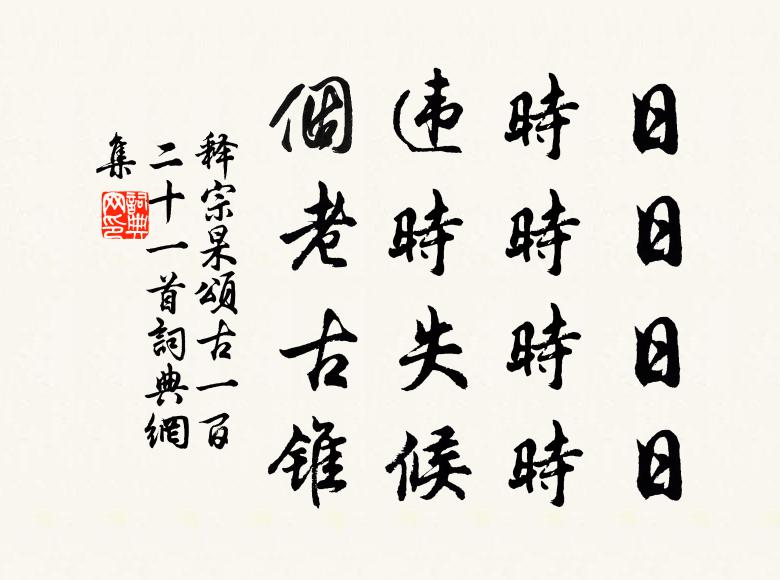 日日日日
時時時時
违時失候
個老古錐
释宗杲頌古一百
二十一首詞典網
集
詞典
网印